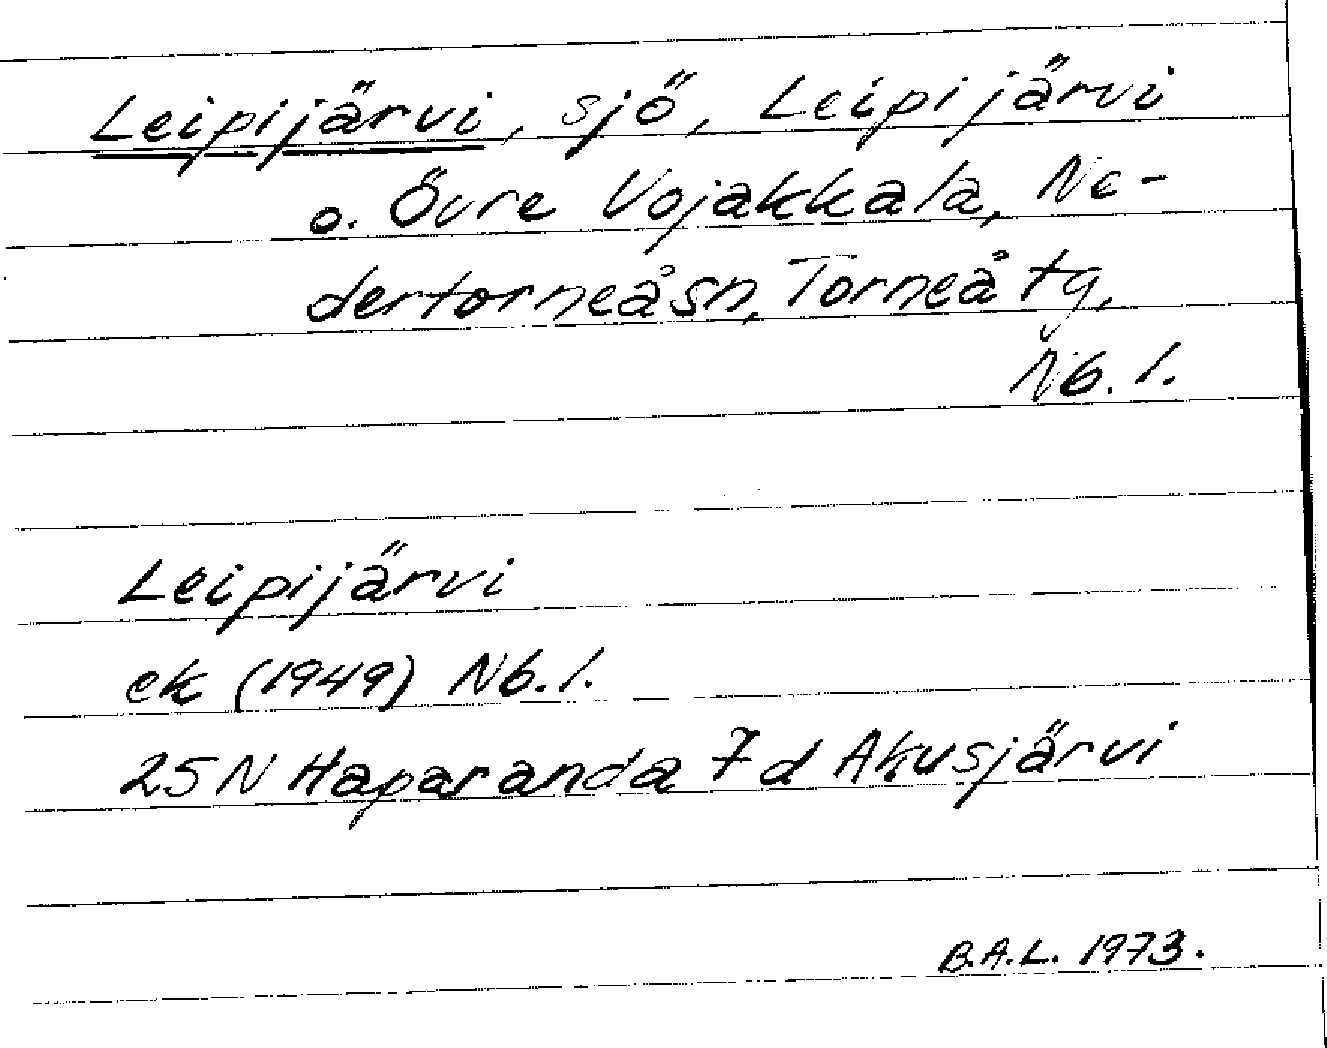 Leipijärvi, sjö, Leipijärvi
o. Övre Vojakkala, Ne-
dertorneå sn, Torneå tg,
Nb. l.
Leipijärvi
ek (1949) Nb. l.
25 N Haparanda 7d Akusjärvi
B.A.L. 1973.